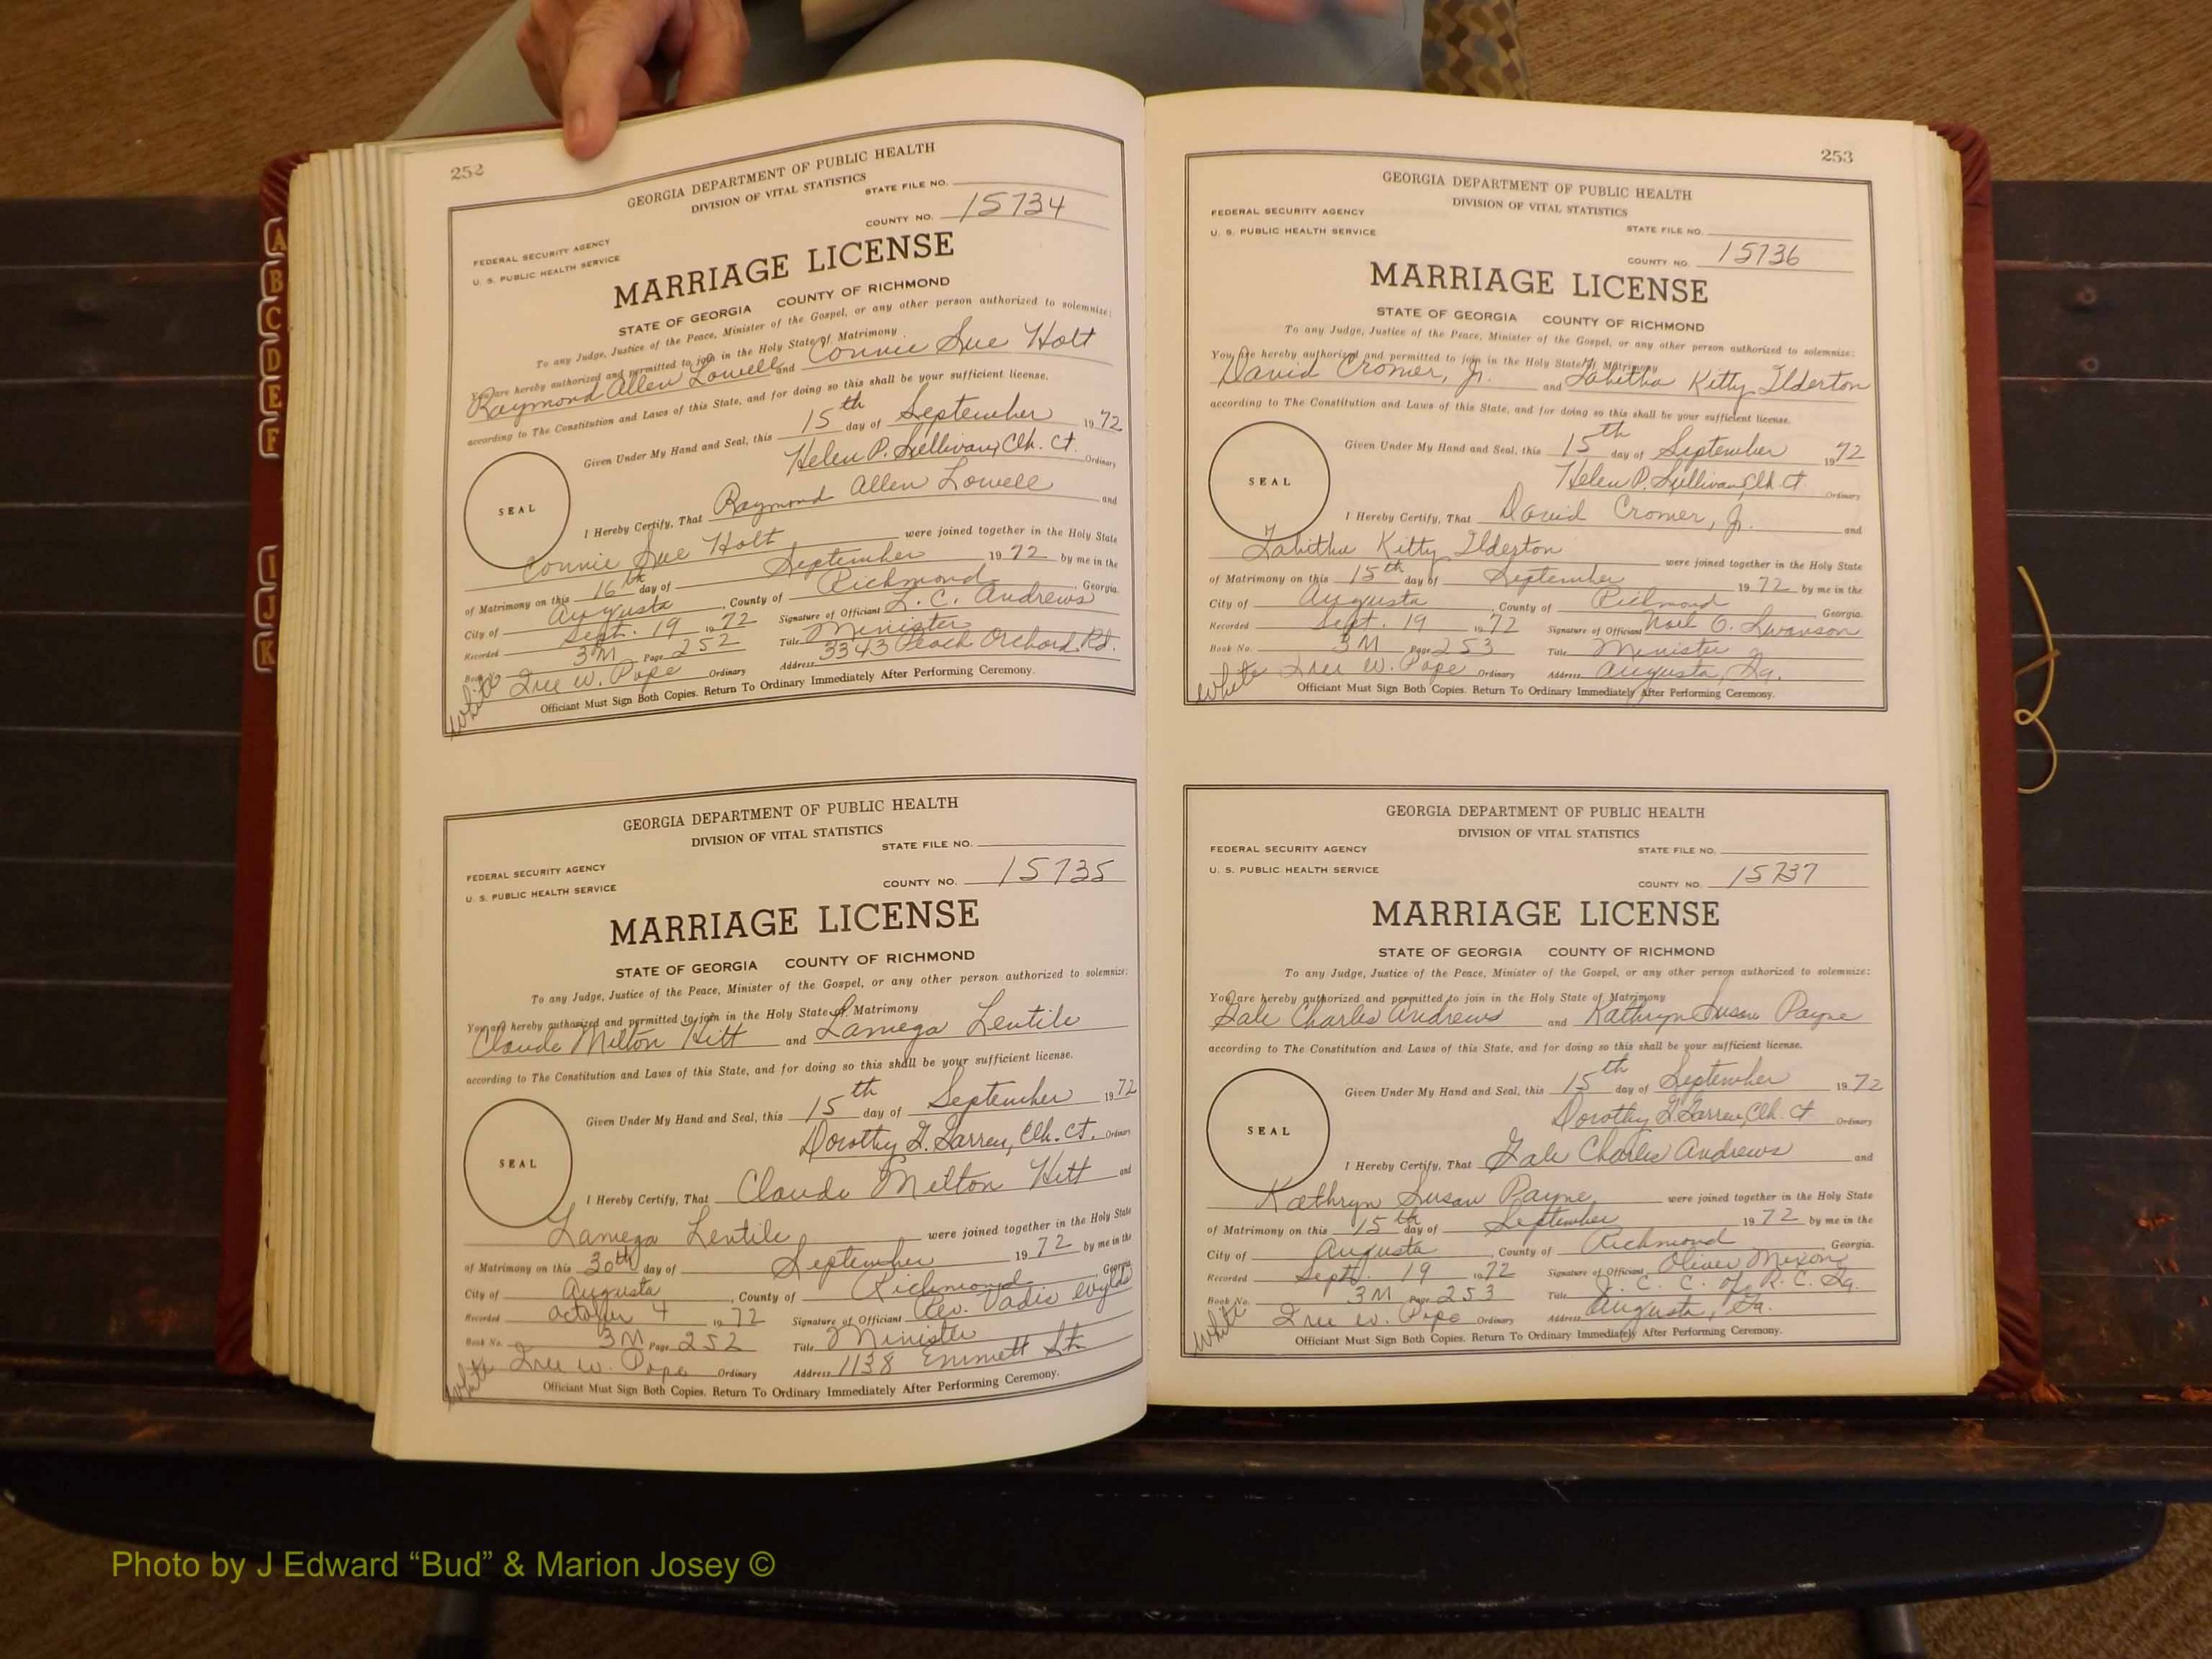 252
GEORGIA DEPARTMENT OF PUBLIC HEALTH
DIVISION OF VITAL STATISTICS
STATE FILE NO.
FEDERAL SECURITY AGENCY
U. S. PUBLIC HEALTH SERVICE
COUNTY NO. 15734
MARRIAGE LICENSE
STATE OF GEORGIA COUNTY OF RICHMOND
To any Judge, Justice of the Peace, Minister of the Gospel, or any other person authorized to solemnize:
You are hereby authorized and permitted to join in the Holy State of Matrimony
Raymond Allen Lowell and Connie Sue Holt
according to The Constitution and Laws of this State, and for doing so this shall be your sufficient license.
Given Under My Hand and Seal, this 15th day of September 1972
Helen P. Sullivan, Clk. Ct. Ordinary
SEAL
I Hereby Certify, That Raymond Allen Lowell and
Connie Sue Holt were joined together in the Holy State
of Matrimony on this 16th day of September 1972 by me in the
City of Augusta, County of Richmond, Georgia.
Recorded Sept. 19 1972 Signature of Officiant L. C. Andrews
Book No. 3M Page 252 Title Minister
White W. Pope Ordinary Address 3343 Peach Orchard Rd.
Officiant Must Sign Both Copies. Return To Ordinary Immediately After Performing Ceremony.
GEORGIA DEPARTMENT OF PUBLIC HEALTH
DIVISION OF VITAL STATISTICS
STATE FILE NO.
FEDERAL SECURITY AGENCY
U. S. PUBLIC HEALTH SERVICE
COUNTY NO. 15735
MARRIAGE LICENSE
STATE OF GEORGIA COUNTY OF RICHMOND
To any Judge, Justice of the Peace, Minister of the Gospel, or any other person authorized to solemnize:
You are hereby authorized and permitted to join in the Holy State of Matrimony
Claude Milton Hitt and Lamega Lentile
according to The Constitution and Laws of this State, and for doing so this shall be your sufficient license.
Given Under My Hand and Seal, this 15th day of September 1972
Dorothy Clk. Ct. Ordinary
SEAL
I Hereby Certify, That Claude Milton Hitt and
Lamega Lentile were joined together in the Holy State
of Matrimony on this 30th day of September 1972 by me in the
City of Augusta, County of Richmond, Georgia
Recorded October 4 1972 Signature of Officiant Rev. Vadis Wylds
Book No. 3M Page 252 Title Minister
White W. Pope Ordinary Address 1138 Emmett St.
Officiant Must Sign Both Copies. Return To Ordinary Immediately After Performing Ceremony.
253
GEORGIA DEPARTMENT OF PUBLIC HEALTH
DIVISION OF VITAL STATISTICS
FEDERAL SECURITY AGENCY
U. S. PUBLIC HEALTH SERVICE
STATE FILE NO.
COUNTY NO. 15736
MARRIAGE LICENSE
STATE OF GEORGIA COUNTY OF RICHMOND
To any Judge, Justice of the Peace, Minister of the Gospel, or any other person authorized to solemnize:
You are hereby authorized and permitted to join in the Holy State of Matrimony
David Cromer, Jr. and Tabitha Kitty Ilderton
according to The Constitution and Laws of this State, and for doing so this shall be your sufficient license.
Given Under My Hand and Seal, this 15th day of September 1972
Helen P. Sullivan, Clk. Ct. Ordinary
SEAL
I Hereby Certify, That David Cromer, Jr. and
Tabitha Kitty Ilderton were joined together in the Holy State
of Matrimony on this 15th day of September 1972 by me in the
City of Augusta, County of Richmond Georgia.
Recorded Sept. 19 1972 Signature of Officiant Noel O. Swanson
Book No. 3M Page 253 Title Minister
White W. Pope Ordinary Address Augusta, Ga.
Officiant Must Sign Both Copies. Return To Ordinary Immediately After Performing Ceremony.
GEORGIA DEPARTMENT OF PUBLIC HEALTH
DIVISION OF VITAL STATISTICS
FEDERAL SECURITY AGENCY
STATE FILE NO.
U. S. PUBLIC HEALTH SERVICE
COUNTY NO. 15737
MARRIAGE LICENSE
STATE OF GEORGIA COUNTY OF RICHMOND
To any Judge, Justice of the Peace, Minister of the Gospel, or any other person authorized to solemnize:
You are hereby authorized and permitted to join in the Holy State of Matrimony
Gale Charles Andrews and Kathryn Susan Payne
according to The Constitution and Laws of this State, and for doing so this shall be your sufficient license.
Given Under My Hand and Seal, this 15th day of September 1972
Dorothy Clk. Ct Ordinary
SEAL
I Hereby Certify, That Gale Charles Andrews and
Kathryn Susan Payne were joined together in the Holy State
of Matrimony on this 15th day of September 1972 by me in the
City of Augusta, County of Richmond, Georgia.
Recorded Sept. 19 1972 Signature of Officiant Oliver Mixon
Book No. 3M Page 253 Title J. C. C. of R. C. Ga.
White W. Pope Ordinary Address Augusta, Ga.
Officiant Must Sign Both Copies. Return To Ordinary Immediately After Performing Ceremony.
A
B
C
D
E
F
I
J
K
Photo by J Edward “Bud” & Marion Josey ©